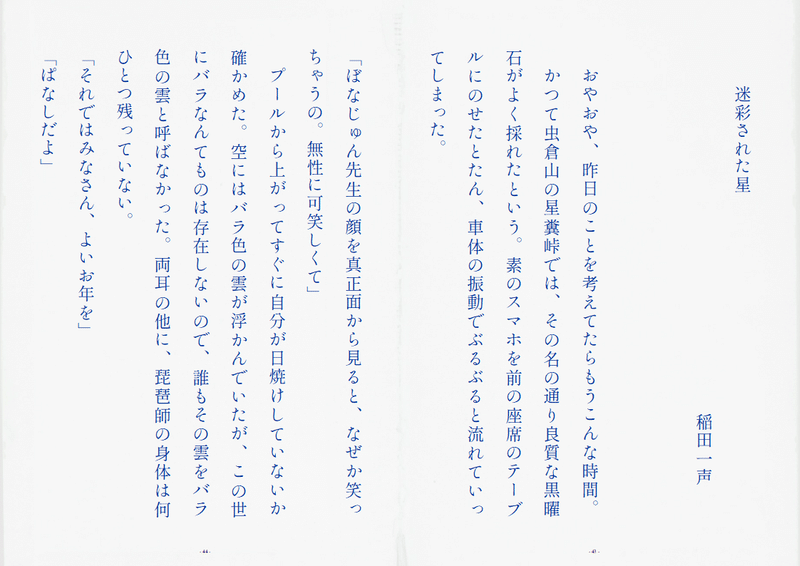 迷彩された星
稲田一声
おやおや、昨日のことを考えてたらもうこんな時間。
かつて虫倉山の星糞峠では、その名の通り良質な黒曜
石がよく採れたという。素のスマホを前の座席のテーブ
ルにのせたとたん、車体の振動でぶるぶると流れていっ
てしまった。
「ぼなじゅん先生の顔を真正面から見ると、なぜか笑っ
ちゃうの。無性に可笑しくて」
プールから上がってすぐに自分が日焼けしていないか
確かめた。空にはバラ色の雲が浮かんでいたが、この世
にバラなんてものは存在しないので、誰もその雲をバラ
色の雲と呼ばなかった。両耳の他に、琵琶師の身体は何
ひとつ残っていない。
「それではみなさん、よいお年を」
「ぱなしだよ」